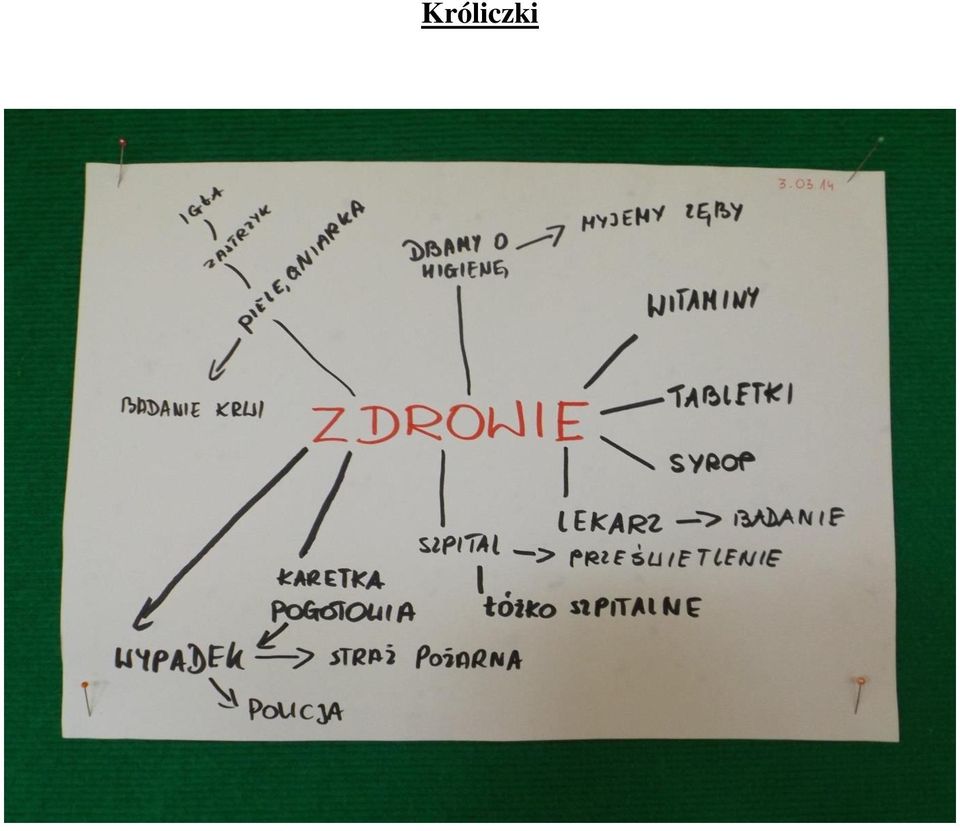 Króliczki
3.03.14
IGŁA
ZASTRZYK
PIELĘGNIARKA
BADANIE KRWI
DBAMY O
HIGIENĘ
MYJEMY ZĘBY
WITAMINY
TABLETKI
SYROP
ZDROWIE
LEKARZ -> BADANIE
SZPITAL -> PRZEŚWIETLENIE
ŁÓŻKO SZPITALNE
KARETKA
POGOTOWIA
WYPADEK -> STRAŻ POŻARNA
POLICJA